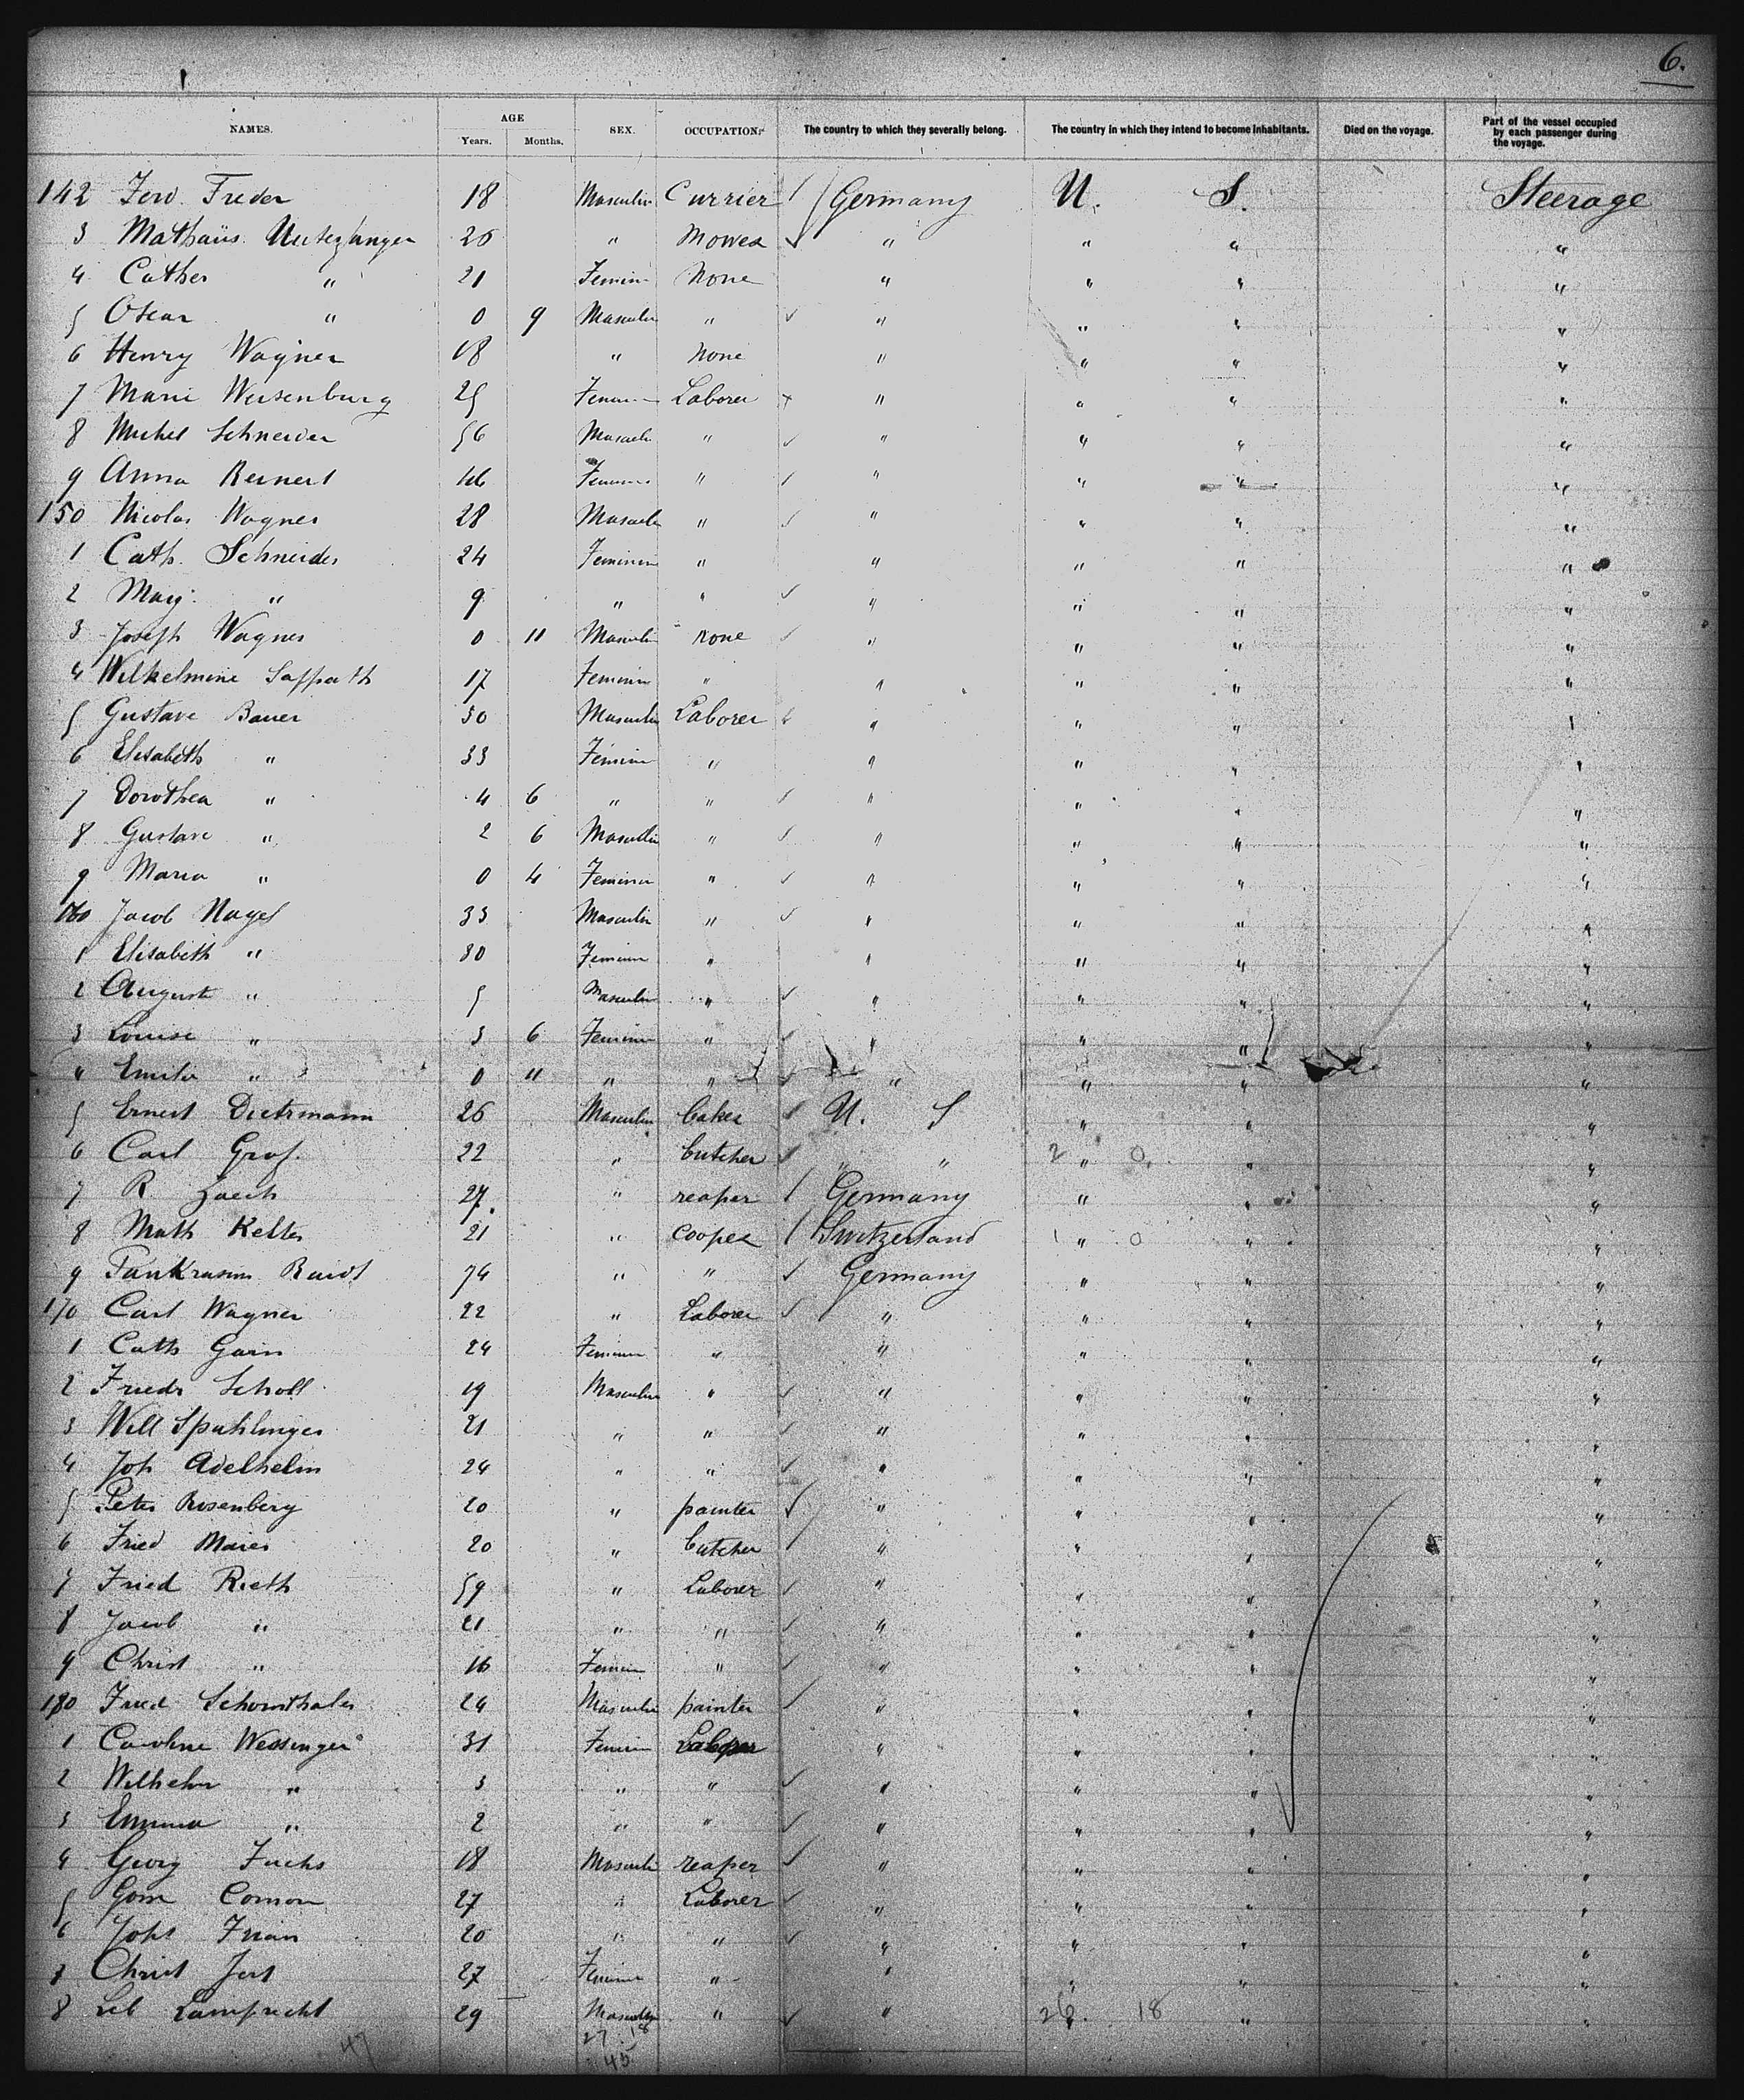 6.
NAMES. AGE Years. Months. SEX. OCCUPATION. The country to which they severally belong. The country in which they intend to become inhabitants. Died on the voyage. Part of the vessel occupied by each passenger during the voyage.
142 Ferd. Freder 18 Masculin Currier Germany U. S. Steerage
3 Mathaüs 26 " Mower " " " "
4 Cather " 21 Feminin None " " " "
5 Oscar " 0 9 Masculin " " " " "
6 Henry Wagner 18 " None " " " "
7 Marie Weisenburg 25 Feminin Laborer " " " "
8 Michel Schneider 56 Masculin " " " " "
9 Anna Reinert Feminin " " " " "
150 Nicolas Wagner 28 Masculin " " " " "
1 Cath. Schneider 24 Feminin " " " " "
2 Marg. " 9 " " " " " "
3 Joseph Wagner 0 11 Masculin none " " " "
4 Wilhelmine 17 Feminin " " " " "
5 Gustave Bauer 30 Masculin Laborer " " "
6 Elisabeth " 33 Feminin " " " " "
7 Dorothea " 4 6 " " " " " "
8 Gustave " 2 6 Masculin " " " " "
9 Maria " 0 4 Feminin " " " " "
160 Jacob Nagel 33 Masculin " " " " "
1 Elisabeth " 30 Feminin " " " " "
2 August " 5 Masculin " " " " "
3 Louise " 3 6 Feminin " " " " "
4 Emilie " 0 11 " " " " " "
5 Ernest Dietrmann 26 Masculin baker U. S " " "
6 Carl Graf. 22 " butcher " " 2 " 0 " "
7 R 27. " reaper Germany " " "
8 Math Keller 21 " cooper Switzerland " 0 " "
9 74 " " Germany " " "
170 Carl Wagner 22 " Laborer " " " "
1 Cath Garin 24 Feminin " " " " "
2 Friedr Scholl 19 Masculin " " " " "
3 Will Spahlinger 21 " " " " " "
4 Joh Adelhelm 24 " " " " " "
5 Peter Rosenberg 20 " painter " " " "
6 Fried Maier 20 " butcher " " " "
7 Fried Rieth 59 " Laborer " " " "
8 Jacob " 21 " " " " " "
9 Christ " 16 Feminin " " " " "
180 Fried Schornthaler 24 Masculin painter " " " "
1 Caroline Wessinger 31 Feminin Laborer " " " "
2 Wilhelm " 3 " " " " " "
3 Emma " 2 " " " " " "
4 Georg Fuchs 18 Masculin reaper " " " "
5 27 " Laborer " " " "
6 20 " " " " " "
7 Christ 27 Feminin " " " " "
8 Leb Lamprecht 29 Masculin " " 26. 18 " "
27 18
47 45